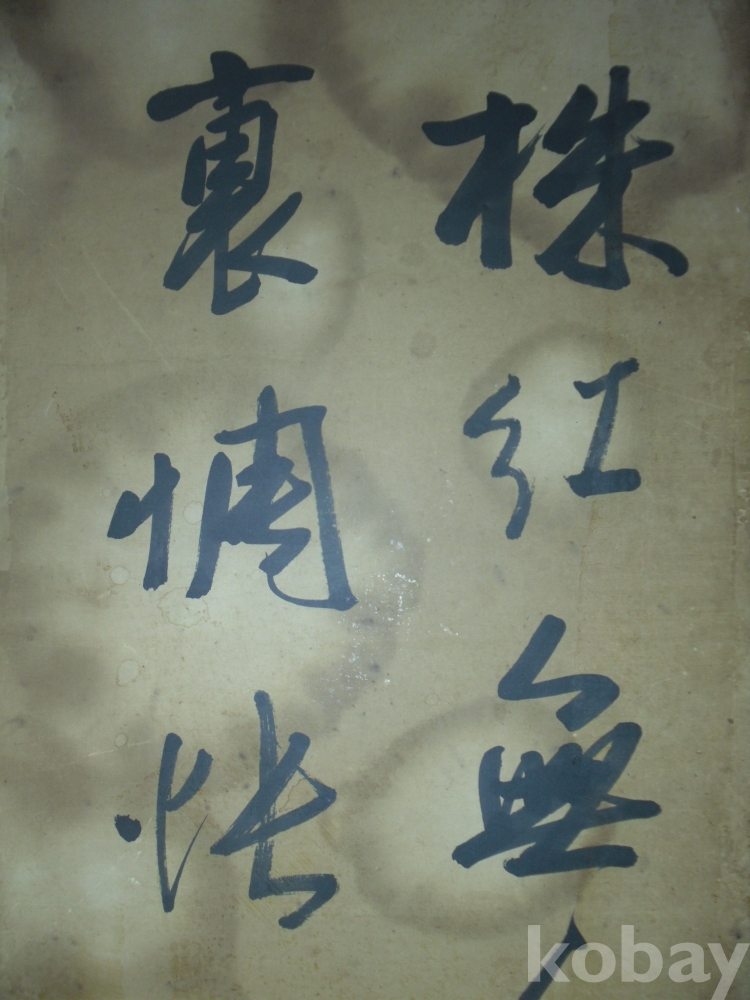 株紅無
裏惆悵
kobay